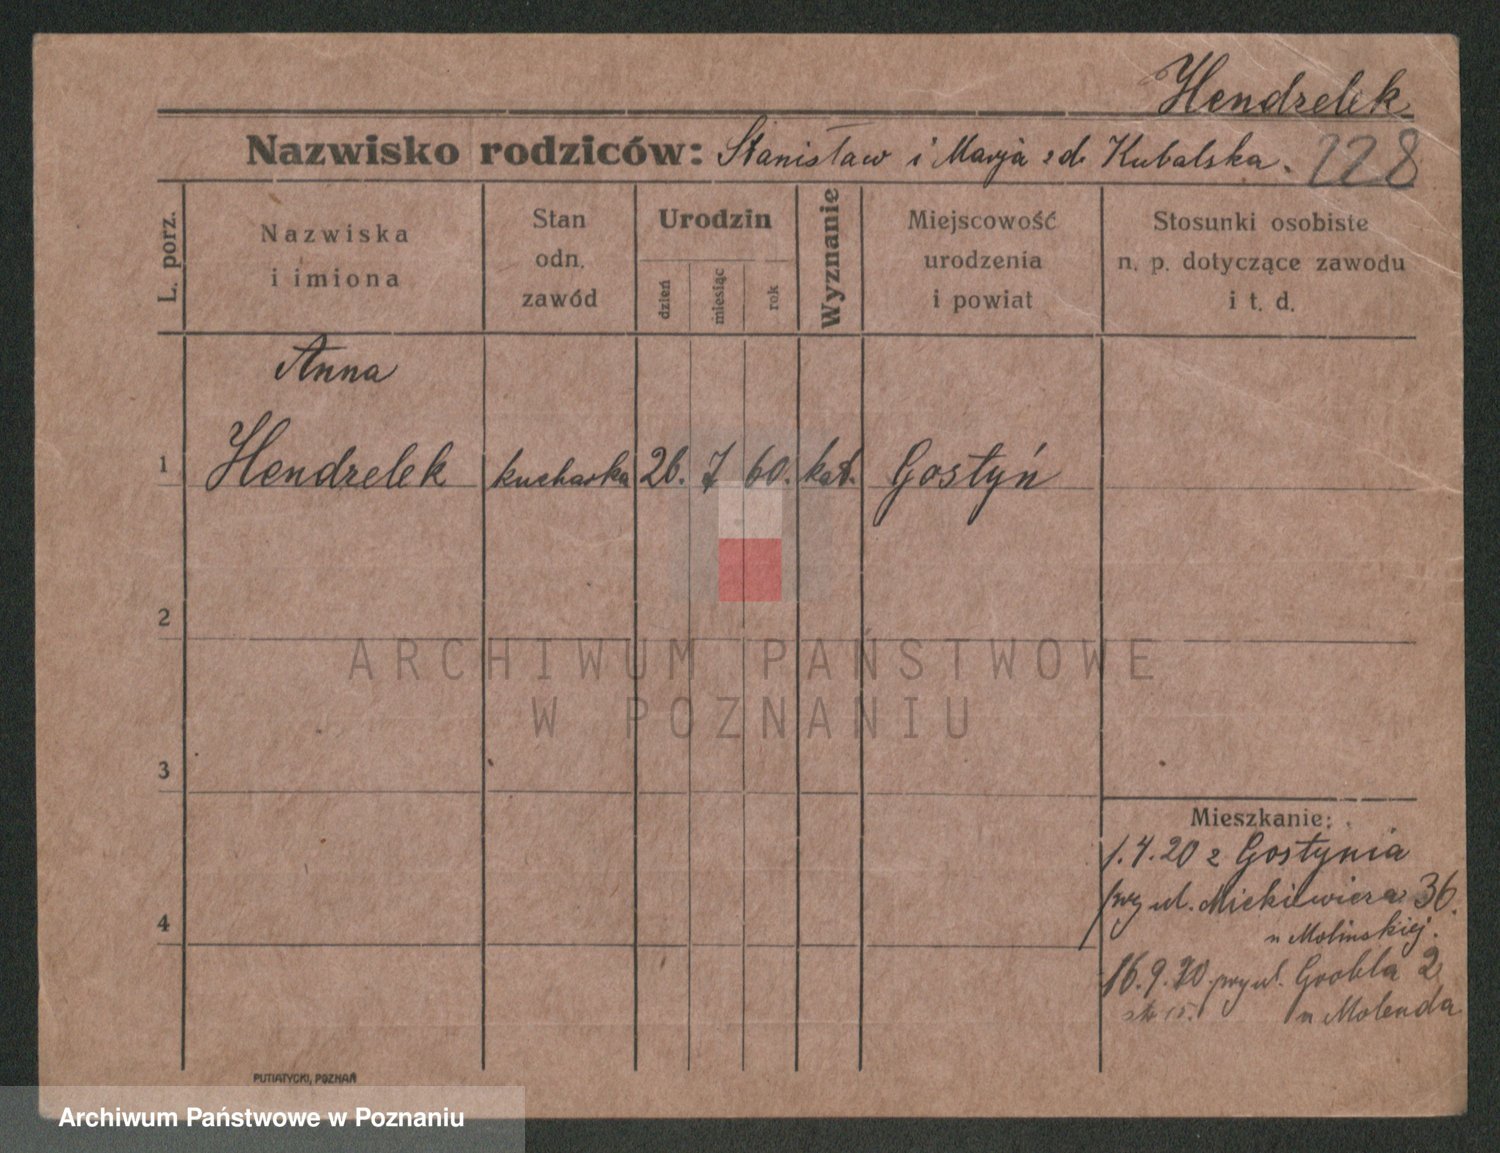 Hendrelek
Nazwisko rodziców: Stanisław i Marja z d. Kubalska.
228
L. porz.
Nazwiska
i imiona
Stan
odn.
zawód
Urodzin
dzień
miesiąc
rok
Wyznanie
Miejscowość
urodzenia
i powiat
Stosunki osobiste
n. p. dotyczące zawodu
i t. d.
Anna
1 Hendrelek kucharka 26. 7 60. kat. Gostyń
2
ARCHIWUM PAŃSTWOWE
W POZNANIU
3
Mieszkanie:
1.4.20 z Gostynia
przy ul. Mickiewicza 36.
u Molinskiej.
4
16.9.20. przy ul. Grobla 2
u Molenda
PUTIATYCKI, POZNAŃ
Archiwum Państwowe w Poznaniu